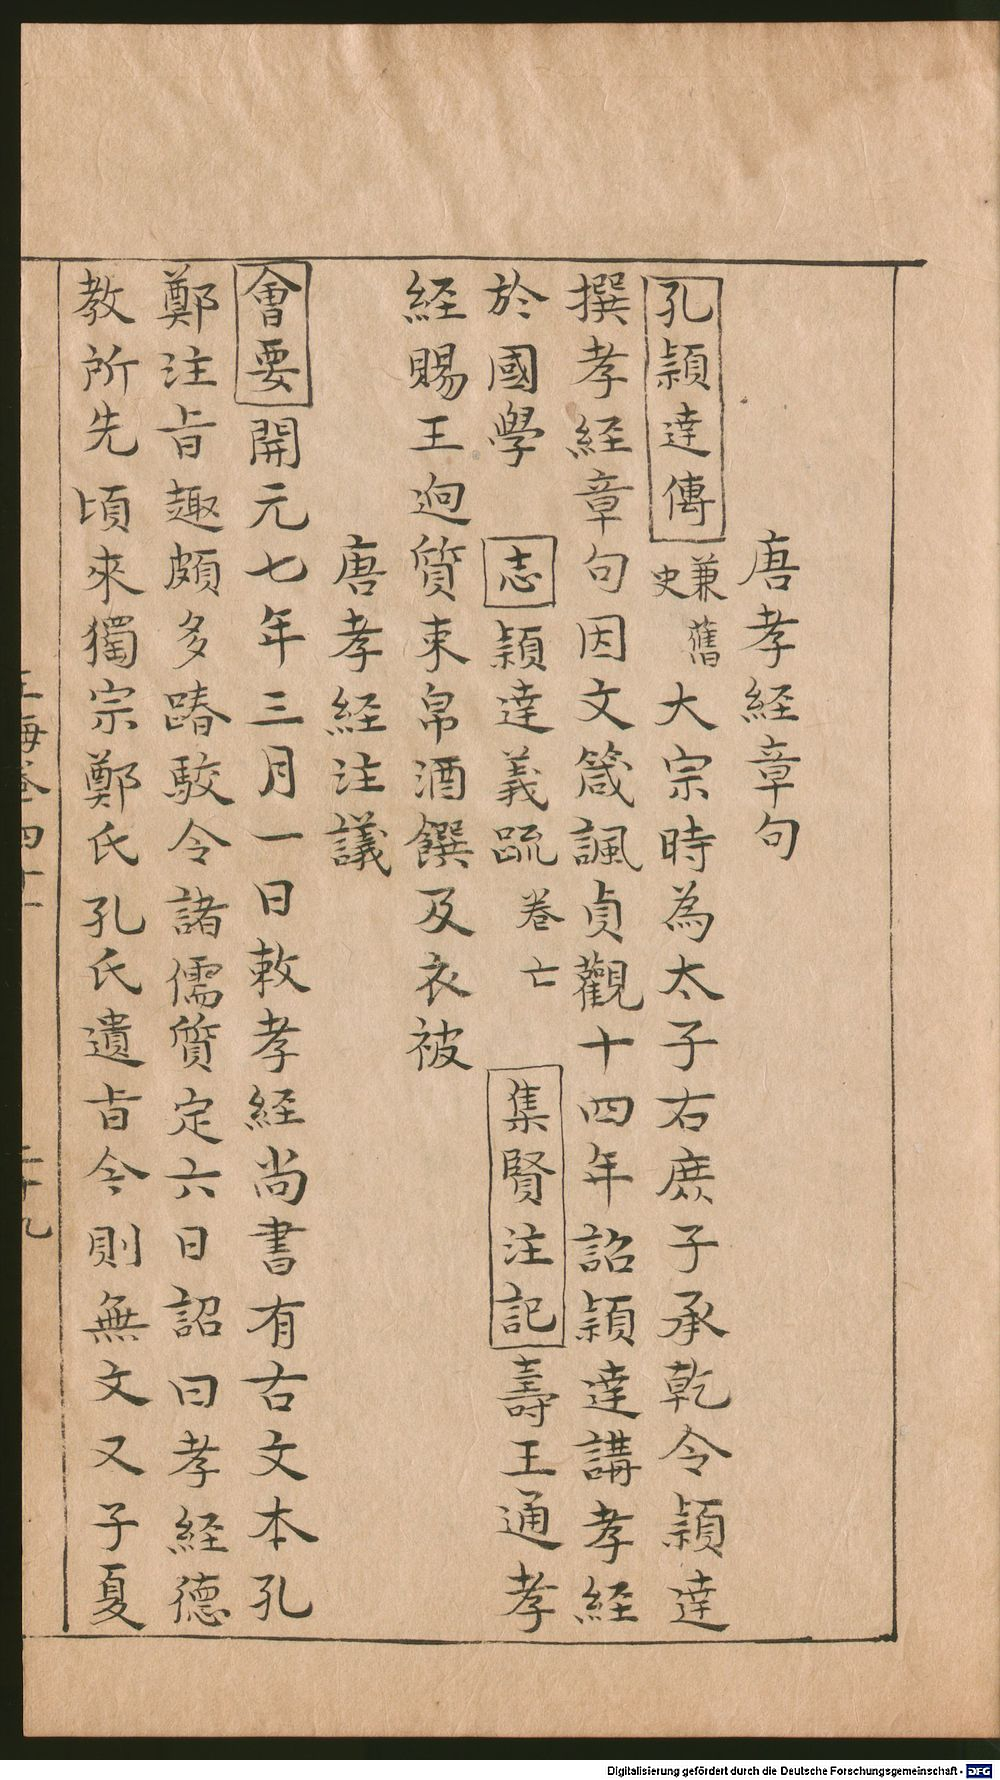 唐孝経章句
孔頴達傳 兼舊史 大宗時為太子右庶子承乾令頴達
撰孝経章句因文箴諷貞觀十四年詔頴達講孝経
於國學 志 頴達義䟽 卷亡 集賢注記 壽王通孝
経賜王迥質束帛酒饌及衣被
唐孝経注議
會要 開元七年三月一日敕孝経尚書有古文本孔
鄭注旨趣頗多踳駮令諸儒質定六日詔曰孝経德
教所先頃來獨宗鄭氏孔氏遺旨今則無文又子夏
玉海卷四十一
二十九
Digitalisierung gefördert durch die Deutsche Forschungsgemeinschaft - DFG